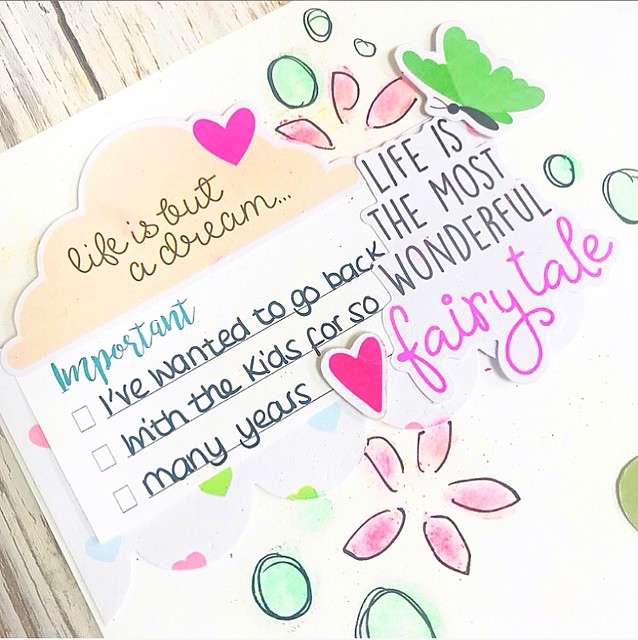 life is but
a dream...
LIFE IS
THE MOST
WONDERFUL
fairytale
Important
I've wanted to go back
with the kids for so
many years